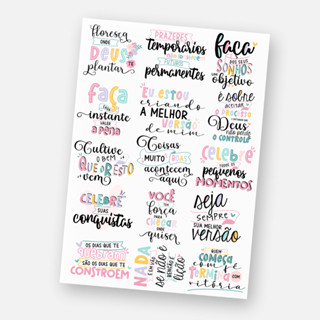 floresça
ONDE
DEUS
TE
plantar
PRAZERES
temporários
FUTUROS
permanentes
faça
DOS
SEUS
SONHOS
objetivo
Faça
CADA
instante
VALER
a pena
EU ESTOU
criando
A MELHOR
VERSÃO
de mim
é sobre
ACEITAR
O PROCESSO
Deus
O CONTROLE
Cultive
O BEM
QUE O RESTO
vem
Coisas
MUITO BOAS
acontecem
aqui
celebre
pequenos
MOMENTOS
CELEBRE
SUAS
conquistas
VOCÊ
TEM
força
PARA
chegar
ONDE
quiser
seja
SEMPRE
SUA MELHOR
VERSÃO
OS DIAS QUE TE
SÃO OS DIAS QUE TE
CONSTROEM
NADA
É EM VÃO
se não é
BENÇÃO É
lição
QUEM
COMEÇA
com fé
TERMINA
COM
vitória